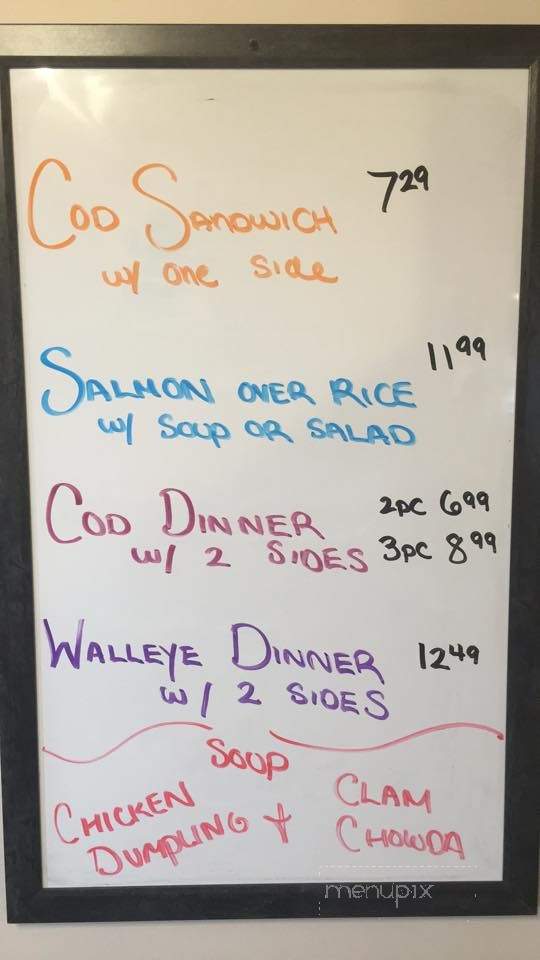 Cod Sandwich 7 29
w/ one side
11 99
Salmon over Rice
w/ Soup or Salad
Cod Dinner 2pc 6 99
w/ 2 Sides 3pc 8 99
Walleye Dinner 12 49
w/ 2 Sides
Soup
Chicken Dumpling + Clam Chowda
menupix